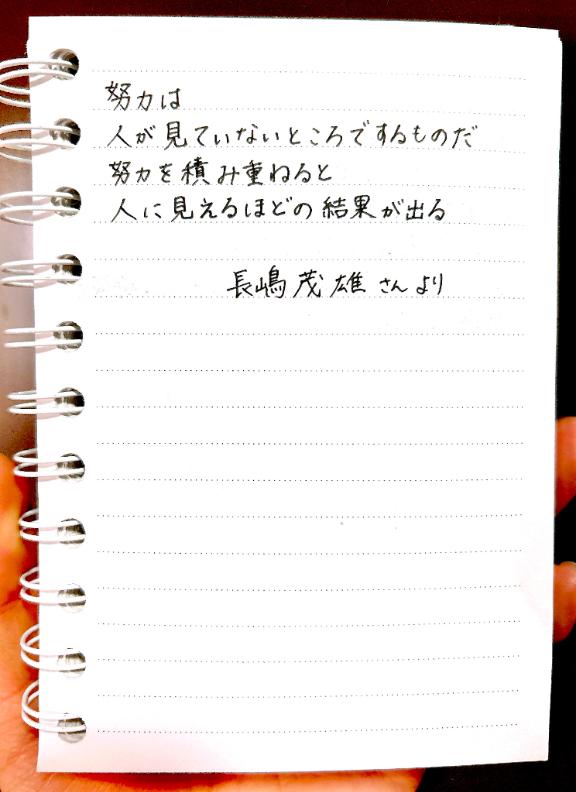 努力は
人が見ていないところでするものだ
努力を積み重ねると
人に見えるほどの結果が出る
長嶋茂雄さんより